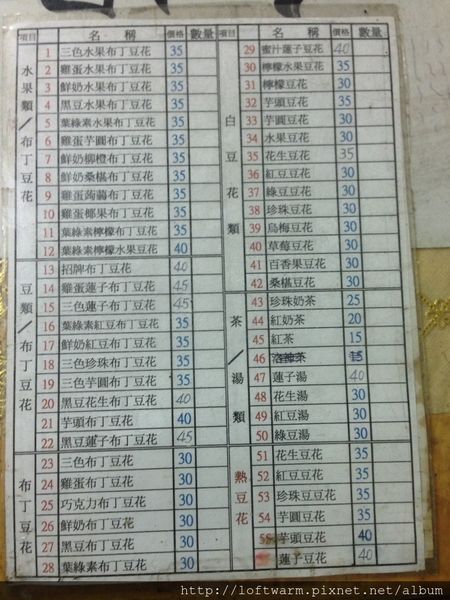 項目 名稱 價格 數量
水果類／布丁豆花
1 三色水果布丁豆花 35
2 雞蛋水果布丁豆花 35
3 鮮奶水果布丁豆花 35
4 黑豆水果布丁豆花 35
5 葉綠素水果布丁豆花 35
6 雞蛋芋圓布丁豆花 35
7 鮮奶柳橙布丁豆花 35
8 鮮奶桑椹布丁豆花 35
9 雞蛋蒟蒻布丁豆花 35
10 雞蛋椰果布丁豆花 35
11 葉綠素檸檬布丁豆花 35
12 葉綠素檸檬水果豆花 40
豆類／布丁豆花
13 招牌布丁豆花 40
14 雞蛋蓮子布丁豆花 45
15 三色蓮子布丁豆花 45
16 葉綠素紅豆布丁豆花 35
17 鮮奶紅豆布丁豆花 35
18 三色珍珠布丁豆花 35
19 三色芋圓布丁豆花 35
20 黑豆花生布丁豆花 40
21 芋頭布丁豆花 40
22 黑豆蓮子布丁豆花 45
布丁豆花
23 三色布丁豆花 30
24 雞蛋布丁豆花 30
25 巧克力布丁豆花 30
26 鮮奶布丁豆花 30
27 黑豆布丁豆花 30
28 葉綠素布丁豆花 30
項目 名稱 價格 數量
白豆花類
29 蜜汁蓮子豆花 40
30 檸檬水果豆花 35
31 檸檬豆花 30
32 芋頭豆花 35
33 芋圓豆花 30
34 水果豆花 30
35 花生豆花 35
36 紅豆豆花 30
37 綠豆豆花 30
38 珍珠豆花 30
39 烏梅豆花 30
40 草莓豆花 30
41 百香果豆花 30
42 桑椹豆花 30
茶／湯類
43 珍珠奶茶 25
44 紅奶茶 20
45 紅茶 15
46 15
47 蓮子湯 40
48 花生湯 30
49 紅豆湯 30
50 綠豆湯 30
熱豆花
51 花生豆花 35
52 紅豆豆花 35
53 珍珠豆豆花 35
54 芋圓豆花 35
55 芋頭豆花 40
蓮子豆花 40
http://loftwarm.pixnet.net/album